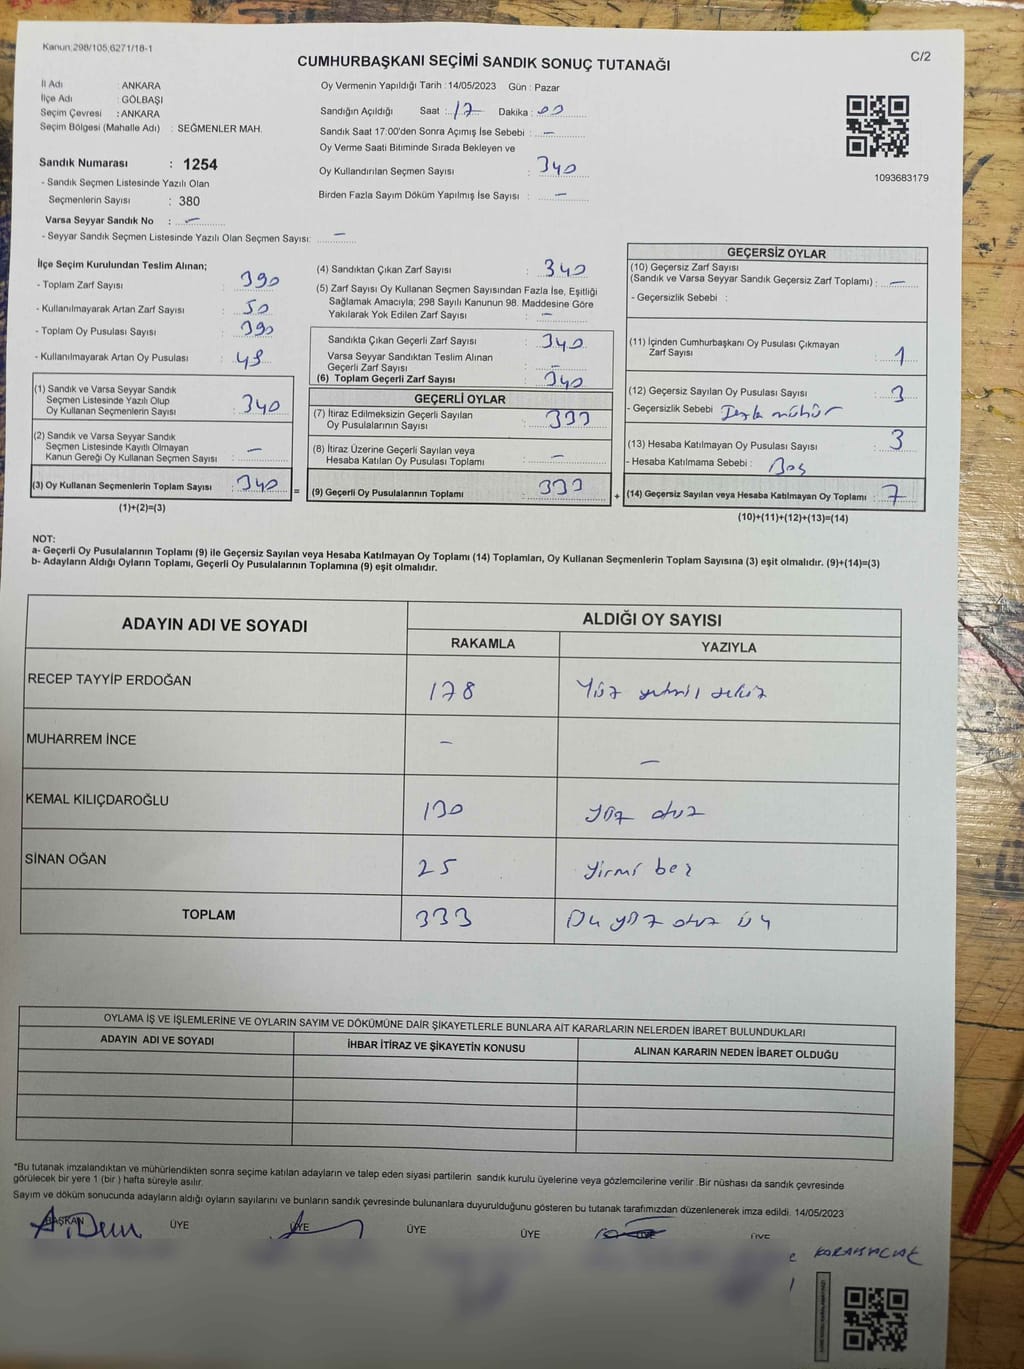 Kanun:298/105;6271/18-1
C/2
CUMHURBAŞKANI SEÇİMİ SANDIK SONUÇ TUTANAĞI
İl Adı : ANKARA
İlçe Adı : GÖLBAŞI
Seçim Çevresi : ANKARA
Seçim Bölgesi (Mahalle Adı) : SEĞMENLER MAH.
Oy Vermenin Yapıldığı Tarih :14/05/2023 Gün : Pazar
Sandığın Açıldığı Saat : 17 Dakika : 00
Sandık Saat 17:00'den Sonra Açımış İse Sebebi : —
Oy Verme Saati Bitiminde Sırada Bekleyen ve
Oy Kullandırılan Seçmen Sayısı : 340
Birden Fazla Sayım Döküm Yapılmış İse Sayısı : —
1093683179
Sandık Numarası : 1254
- Sandık Seçmen Listesinde Yazılı Olan
Seçmenlerin Sayısı : 380
Varsa Seyyar Sandık No : —
- Seyyar Sandık Seçmen Listesinde Yazılı Olan Seçmen Sayısı: —
İlçe Seçim Kurulundan Teslim Alınan;
- Toplam Zarf Sayısı : 390
- Kullanılmayarak Artan Zarf Sayısı : 50
- Toplam Oy Pusulası Sayısı : 390
- Kullanılmayarak Artan Oy Pusulası :
(1) Sandık ve Varsa Seyyar Sandık
Seçmen Listesinde Yazılı Olup
Oy Kullanan Seçmenlerin Sayısı : 340
(2) Sandık ve Varsa Seyyar Sandık
Seçmen Listesinde Kayıtlı Olmayan
Kanun Gereği Oy Kullanan Seçmen Sayısı : —
(3) Oy Kullanan Seçmenlerin Toplam Sayısı : 340 =
(1)+(2)=(3)
(4) Sandıktan Çıkan Zarf Sayısı : 340
(5) Zarf Sayısı Oy Kullanan Seçmen Sayısından Fazla İse, Eşitliği
Sağlamak Amacıyla; 298 Sayılı Kanunun 98. Maddesine Göre
Yakılarak Yok Edilen Zarf Sayısı : —
Sandıkta Çıkan Geçerli Zarf Sayısı : 340
Varsa Seyyar Sandıktan Teslim Alınan
Geçerli Zarf Sayısı : —
(6) Toplam Geçerli Zarf Sayısı : 340
GEÇERLİ OYLAR
(7) İtiraz Edilmeksizin Geçerli Sayılan
Oy Pusulalarının Sayısı : 333
(8) İtiraz Üzerine Geçerli Sayılan veya
Hesaba Katılan Oy Pusulası Toplamı : —
(9) Geçerli Oy Pusulalarının Toplamı : 333 +
GEÇERSİZ OYLAR
(10) Geçersiz Zarf Sayısı
(Sandık ve Varsa Seyyar Sandık Geçersiz Zarf Toplamı) : —
- Geçersizlik Sebebi :
(11) İçinden Cumhurbaşkanı Oy Pusulası Çıkmayan
Zarf Sayısı : 1
(12) Geçersiz Sayılan Oy Pusulası Sayısı : 3
- Geçersizlik Sebebi : mühür
(13) Hesaba Katılmayan Oy Pusulası Sayısı : 3
- Hesaba Katılmama Sebebi : Boş
(14) Geçersiz Sayılan veya Hesaba Katılmayan Oy Toplamı : 7
(10)+(11)+(12)+(13)=(14)
NOT:
a- Geçerli Oy Pusulalarının Toplamı (9) ile Geçersiz Sayılan veya Hesaba Katılmayan Oy Toplamı (14) Toplamları, Oy Kullanan Seçmenlerin Toplam Sayısına (3) eşit olmalıdır. (9)+(14)=(3)
b- Adayların Aldığı Oyların Toplamı, Geçerli Oy Pusulalarının Toplamına (9) eşit olmalıdır.
ADAYIN ADI VE SOYADI
ALDIĞI OY SAYISI
RAKAMLA YAZIYLA
RECEP TAYYİP ERDOĞAN 178 Yüz yetmiş sekiz
MUHARREM İNCE — —
KEMAL KILIÇDAROĞLU 130 yüz otuz
SİNAN OĞAN 25 yirmi beş
TOPLAM 333 Üç yüz otuz üç
OYLAMA İŞ VE İŞLEMLERİNE VE OYLARIN SAYIM VE DÖKÜMÜNE DAİR ŞİKAYETLERLE BUNLARA AİT KARARLARIN NELERDEN İBARET BULUNDUKLARI
ADAYIN ADI VE SOYADI İHBAR İTİRAZ VE ŞİKAYETİN KONUSU ALINAN KARARIN NEDEN İBARET OLDUĞU
*Bu tutanak imzalandıktan ve mühürlendikten sonra seçime katılan adayların ve talep eden siyasi partilerin sandık kurulu üyelerine veya gözlemcilerine verilir .Bir nüshası da sandık çevresinde
görülecek bir yere 1 (bir ) hafta süreyle asılır.
Sayım ve döküm sonucunda adayların aldığı oyların sayılarını ve bunların sandık çevresinde bulunanlara duyurulduğunu gösteren bu tutanak tarafımızdan düzenlenerek imza edildi. 14/05/2023
BAŞKAN ÜYE ÜYE ÜYE ÜYE ÜYE ÜYE